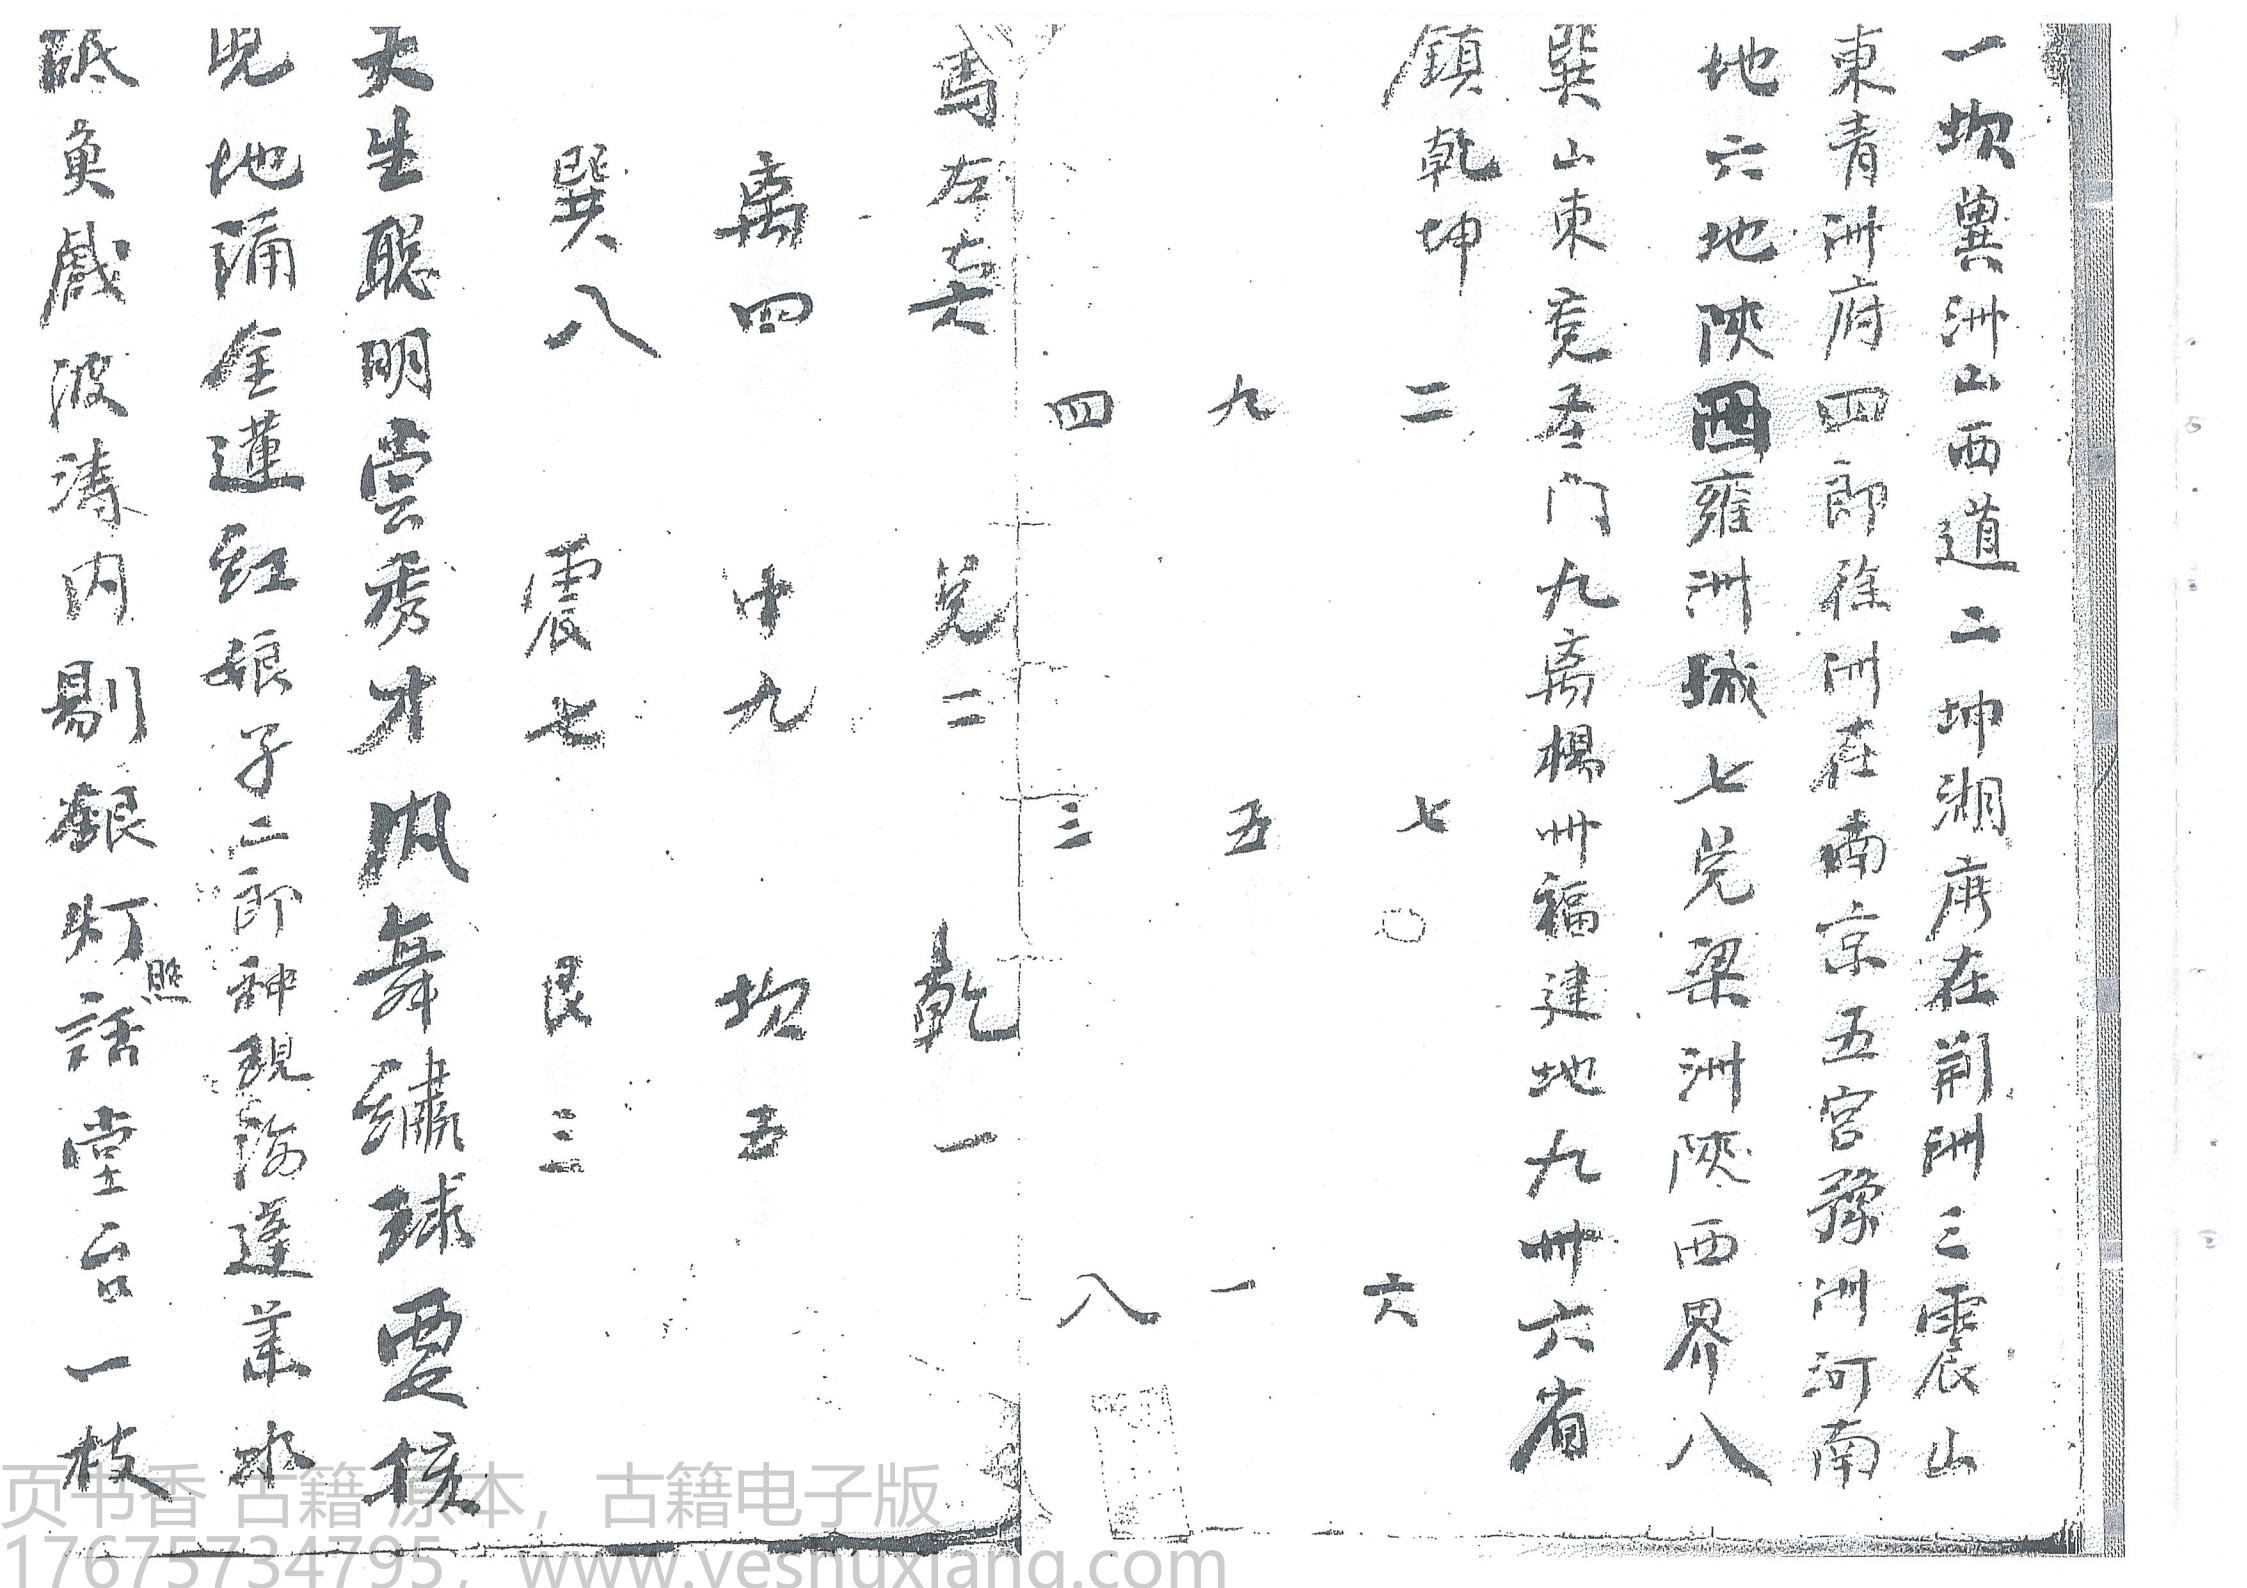 一坎兾洲山西道二坤湖廣在荊洲三震山
東青洲府四郎徐洲在南京五宮豫洲河南
地六地陝西雍洲城七兑梁洲陝西界八
巽山東兗圣门九离楊州福建地九州六省
鎮乾坤
二 七 六
九 五 一
四 三 八
馬左右六 兑二 乾一
离四 中九 坎五
巽八 震七 艮三
天生聡明雲秀才风舞繡球耍核
児地涌金蓮紅娘子二郎神現海蓬萊水
底魚戲波濤内剔銀灯話堂台一枝
照
页书香 古籍 原本，古籍电子版
17675734795，www.yeshuxiang.com